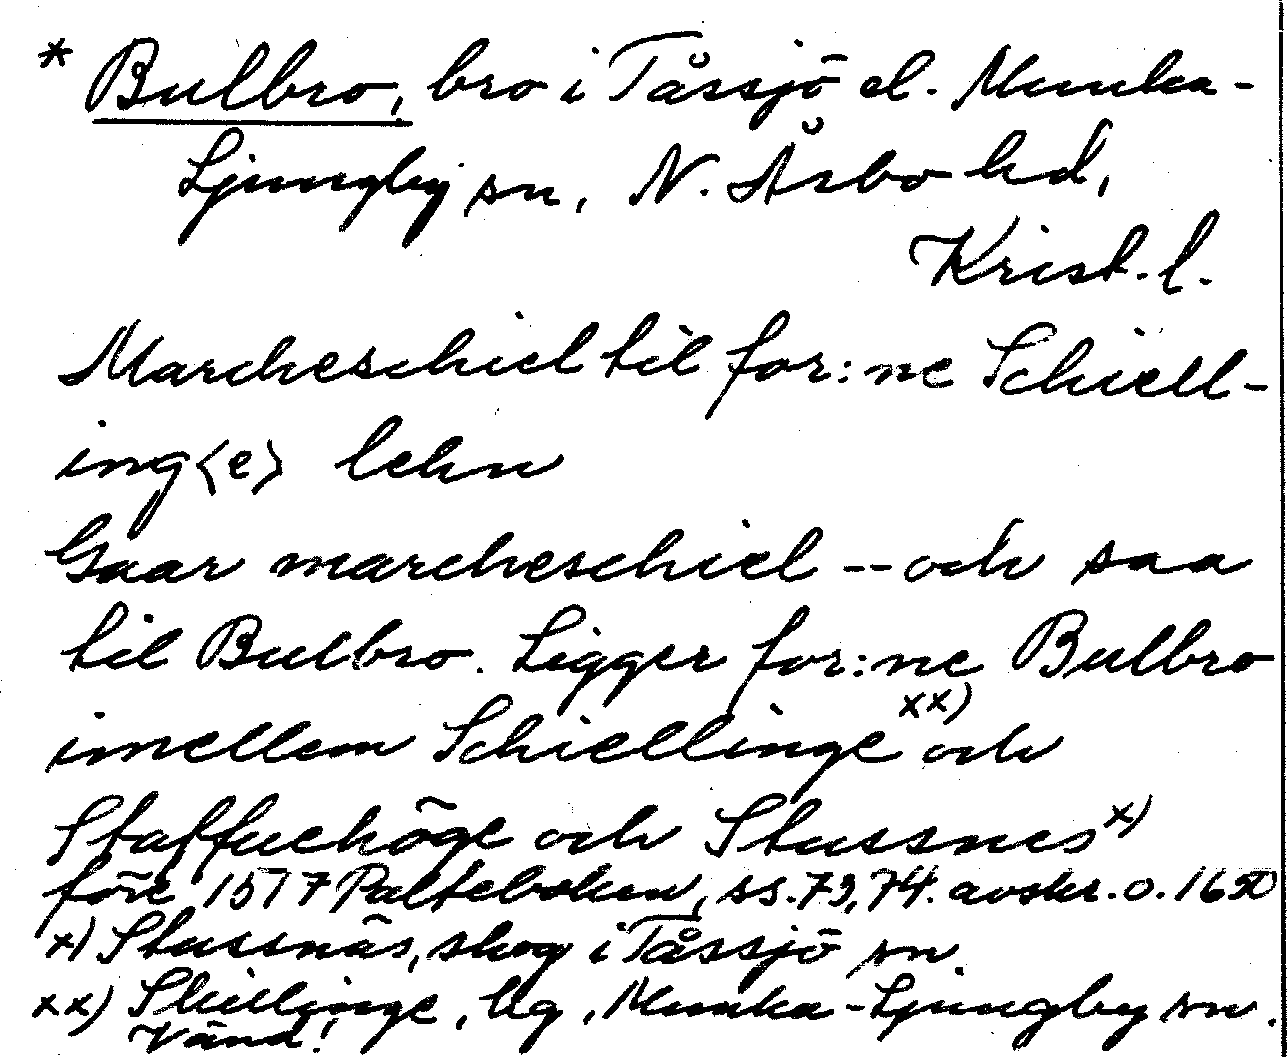 * Bulbro, bro i Tåssjö el. Munka-
Ljungby sn, N. Åsbo hd,
Krist. l.
Marcheschiel til for:ne Schiell-
ing<e> lehn
Gaar marcheschiel -- och saa
til Bulbro. Ligger for:ne Bulbro
imellem Schiellinge xx) och
Staffuehöge och Stussnes x)
före 1577 Palteboken, ss. 73, 74. avskr. o. 1650
x) Stussnäs, skog i Tåssjö sn.
xx) Skillinge, bg, Munka-Ljungby sn.
Vänd!